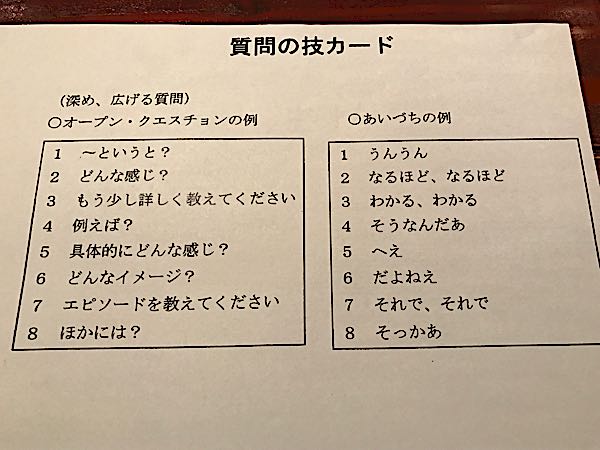 質問の技カード
（深め、広げる質問）
○オープン・クエスチョンの例
1 〜というと？
2 どんな感じ？
3 もう少し詳しく教えてください
4 例えば？
5 具体的にどんな感じ？
6 どんなイメージ？
7 エピソードを教えてください
8 ほかには？
○あいづちの例
1 うんうん
2 なるほど、なるほど
3 わかる、わかる
4 そうなんだあ
5 へえ
6 だよねえ
7 それで、それで
8 そっかあ